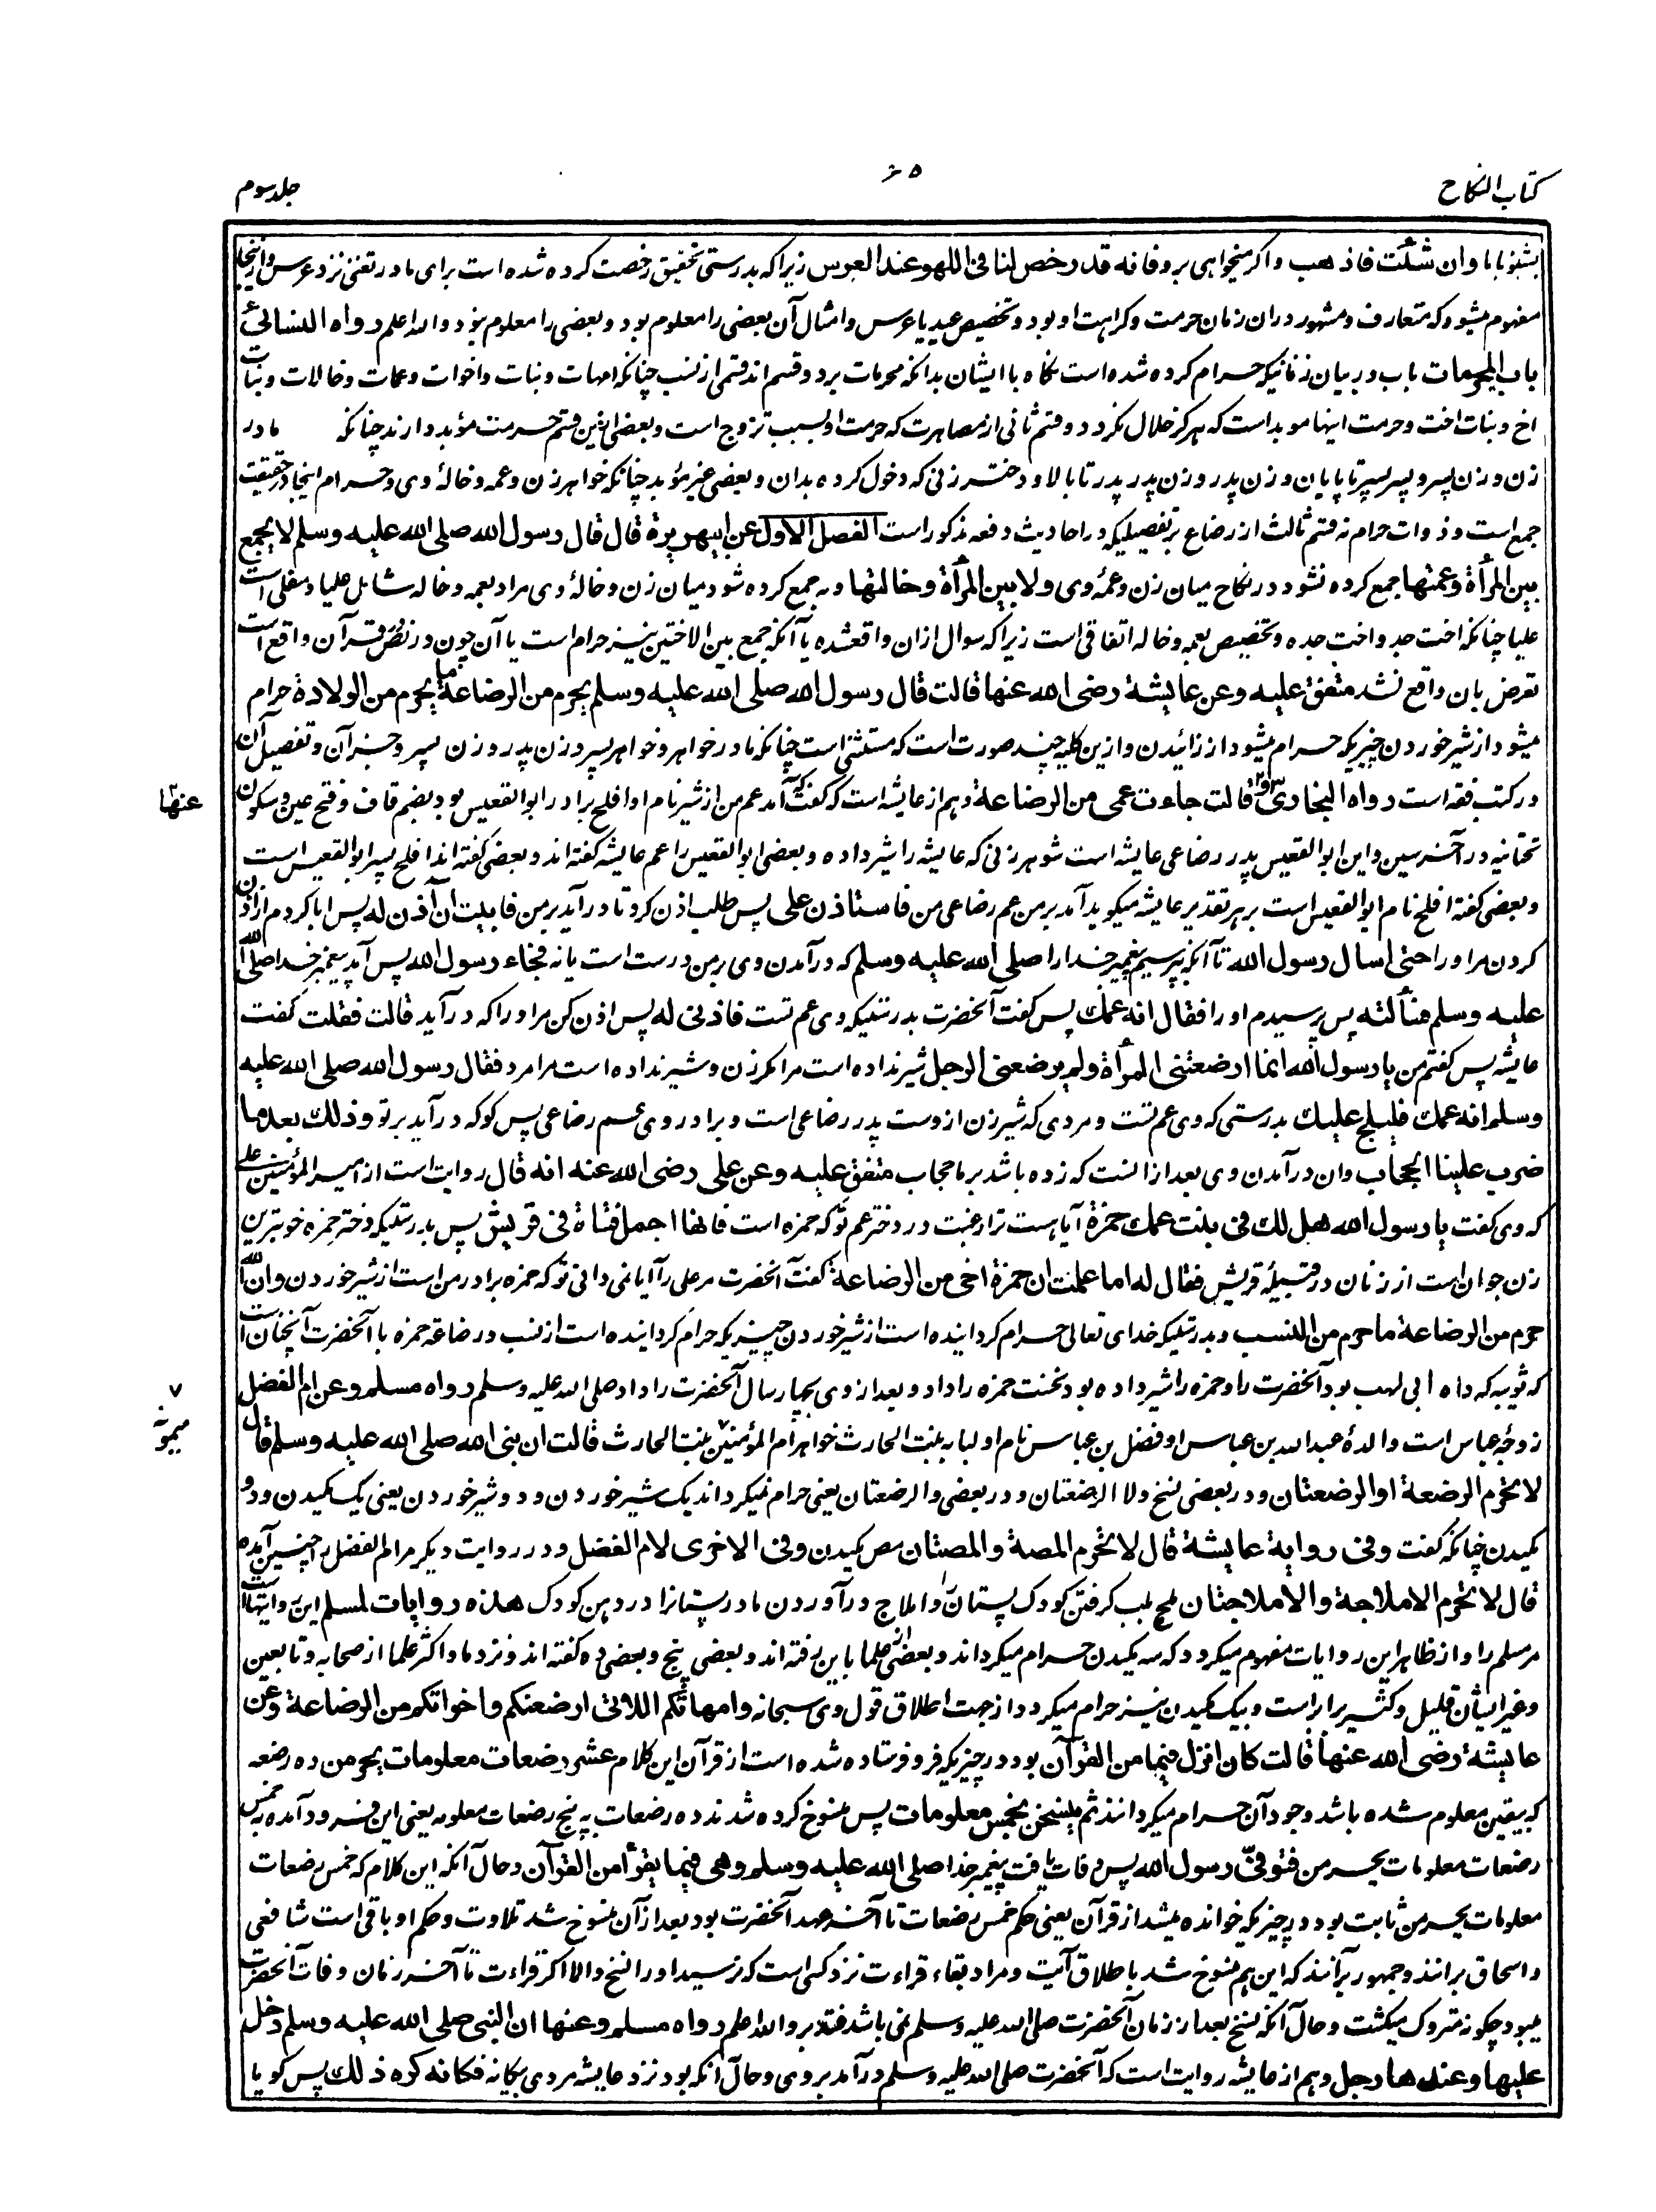 کتاب النکاح
۶۵
جلد سوم
بشنو با ما وان شئت فاذهب و اگر میخواهی برو فانه قد رخص لنا فی اللهو عند العرس زیرا که بدرستی تحقیق رخصت کرده شده است برای ما در تغنی نزد عرس و از اینجا
مفهوم میشود که متعارف و مشهور در ان زمان حرمت و کراهت او بود و تخصیص عید یا عرس و امثال آن بعضی را معلوم بود و بعضی را معلوم نبود والله اعلم رواه النسائی
باب المحرمات باب در بیان زنانیکه حرام کرده شده است نکاح با ایشان بدانکه محرمات بر دو قسم اند قسمی از نسب چنانکه امهات و بنات و اخوات و عمات و خالات و بنات
اخ و بنات اخت و حرمت اینها موبد است که هرگز حلال نگردد و قسم ثانی از مصاهرت که حرمت او بسبب تزوج است و بعضی ازین قسم حرمت مؤبد دارند چنانکه مادر
زن و زن پسر و پسر پسر تا پایان و زن پدر و زن پدر پدر تا بالا و دختر زنی که دخول کرده بدان و بعضی غیر مؤبد چنانکه خواهر زن و عمه و خالهٔ وی و حرام اینجا در حقیقت
جمع است و ذوات حرام نه قسم ثالث از رضاع بر تفصیلیکه در احادیث و فقه مذکور است الفصل الاول عن ابی هریرة قال قال رسول الله صلی الله علیه وسلم لا یجمع
بین المرأة وعمتها جمع کرده نشود در نکاح میان زن و عمهٔ وی ولا بین المرأة وخالتها و نه جمع کرده شود میان زن و خالهٔ وی مراد بعمه و خاله شامل علیا و سفلی است
علیا چنانکه اخت جد و اخت جده و تخصیص بعمه و خاله اتفاقی است زیرا که سوال ازان واقعشده یا آنکه جمع بین الاختین نیز حرام است یا آن چون در نص قرآن واقع است
تعرض بان واقع نشد متفق علیه وعن عایشة رضی الله عنها قالت قال رسول الله صلی الله علیه وسلم یحرم من الرضاعة ما یحرم من الولادة حرام
میشود از شیر خوردن چیزیکه حرام میشود از زائیدن و ازین کلیه چند صورت است که مستثنی است چنانکه مادر خواهر و خواهر پسر و زن پدر و زن پسر و جز آن و تفصیل آن
در کتب فقه است رواه البخاری وعنها قالت جاءت عمی من الرضاعة و هم از عایشه است که گفت آمد عم من از شیر نام او افلح برادر ابو القعیس بود بضم قاف و فتح عین و سکون
تحتانیه در آخر سین و این ابو القعیس پدر رضاعی عایشه است شوهر زنی که عایشه را شیر داده و بعضی ابو القعیس را عم عایشه گفته اند و بعضی گفته اند افلح پسر ابو القعیس است
و بعضی گفته افلح نام ابو القعیس است بر هر تقدیر عایشه میگوید آمد بر من عم رضاعی من فاستاذن علی پس طلب اذن کرد تا در آید بر من فابیت ان آذن له پس ابا کردم از اذن
کردن مر او را حتی اسال رسول الله تا آنکه بپرسم پیغمبر خدا را صلی الله علیه وسلم که در آمدن وی بر من درست است یا نه فجاء رسول الله پس آمد پیغمبر خدا صلی الله
علیه وسلم فسألته پس پرسیدم او را فقال انه عمك پس گفت آنحضرت بدرستیکه وی عم تست فاذنی له پس اذن کن مر او را که در آید قالت فقلت گفت
عایشه پس گفتم من یا رسول الله انما ارضعتنی المرأة ولم یرضعنی الرجل شیر نداده است مرا مگر زن و شیر نداده است مرا مرد فقال رسول الله صلی الله علیه
وسلم انه عمك فلیلج علیك بدرستی که وی عم تست و مردی که شیر زن از وست پدر رضاعی است و برادر وی عم رضاعی پس گو که در آید بر تو وذلك بعد ما
ضرب علینا الحجاب و ان در آمدن وی بعد از انست که زده باشد بر ما حجاب متفق علیه وعن علی رضی الله عنه انه قال روایت است از امیر المؤمنین علی
که وی گفت یا رسول الله هل لك فی بنت عمك حمزة آیا هست ترا رغبت در دختر عم تو که حمزه است فانها اجمل فتاة فی قریش پس بدرستیکه دختر حمزه خوبترین
زن جوان است از زنان در قبیلهٔ قریش فقال له اما علمت ان حمزة اخی من الرضاعة گفت آنحضرت مر علی را آیا نمی دانی تو که حمزه برادر من است از شیر خوردن وان الله
حرم من الرضاعة ما حرم من النسب و بدرستیکه خدای تعالی حرام گردانیده است از شیر خوردن چیزیکه حرام گردانیده است از نسب و رضاعه حمزه با آنحضرت آنچنان است
که ثویبه که داه ابی لهب بود آنحضرت را و حمزه را شیر داده بود نخست حمزه را داد و بعد از وی بچهار سال آنحضرت را داد صلی الله علیه وسلم رواه مسلم وعن ام الفضل
زوجهٔ عباس است والدهٔ عبدالله بن عباس و فضل بن عباس نام او لبابه بنت الحارث خواهر ام المؤمنین بنت الحارث قالت ان نبی الله صلی الله علیه وسلم قال
لا تحرم الرضعة او الرضعتان و در بعضی نسخ ولا الرضعتان و در بعضی والرضعتان یعنی حرام نمیگرداند یک شیر خوردن و دو شیر خوردن یعنی یک مکیدن و دو
مکیدن چنانکه گفت وفی روایة عایشة قال لا تحرم المصة والمصتان مص مکیدن وفی الاخری لام الفضل و در روایت دیگر مر ام الفضل را چنین آمده
قال لا تحرم الاملاجة والاملاجتان ملج بلب گرفتن کودک پستان را و املاج در آوردن مادر پستانرا در دهن کودک هذه روایات لمسلم این روایتها است
مر مسلم را و از ظاهر این روایات مفهوم میگردد که سه مکیدن حرام میگرداند و بعضی از علما باین رفته اند و بعضی پنج و بعضی ده گفته اند و نزد ما و اکثر علما از صحابه و تابعین
و غیر ایشان قلیل و کثیر برابر است و بیک مکیدن نیز حرام میگردد از جهت اطلاق قول وی سبحانه وامهاتکم اللاتی ارضعنکم واخواتکم من الرضاعة وعن
عایشة رضی الله عنها قالت کان انزل فیما من القرآن بود در چیزیکه فرو فرستاده شده است از قرآن این کلام عشر رضعات معلومات یحرمن ده رضعه
که بیقین معلوم شده باشد وجود آن حرام میگردانند ثم نسخن بخمس معلومات پس منسوخ کرده شدند ده رضعات به پنج رضعات معلومه یعنی این فرود آمده خمس
رضعات معلومات یحرمن فتوفی رسول الله پس وفات یافت پیغمبر خدا صلی الله علیه وسلم وهی فیما یقرأ من القرآن و حال آنکه این کلام که خمس رضعات
معلومات یحرمن ثابت بود در چیزیکه خوانده میشد از قرآن یعنی حکم خمس رضعات تا آخر عهد آنحضرت بود بعد از آن منسوخ شد تلاوت و حکم او باقی است شافعی
و اسحاق برانند و جمهور برآنند که این هم منسوخ شد باطلاق آیت و مراد بقاء قراءت نزد کسی است که نرسید او را نسخ والا اگر قراءت تا آخر زمان وفات آنحضرت
میبود چگونه متروک میگشت و حال آنکه نسخ بعد از زمان آنحضرت صلی الله علیه وسلم نمی باشد فتدبر والله اعلم رواه مسلم وعنها ان النبی صلی الله علیه وسلم دخل
علیها وعندها رجل و هم از عایشه روایت است که آنحضرت صلی الله علیه وسلم در آمد بر وی و حال آنکه بود نزد عایشه مردی بیگانه فکانه کره ذلك پس گویا
عنها
۷
میمونه